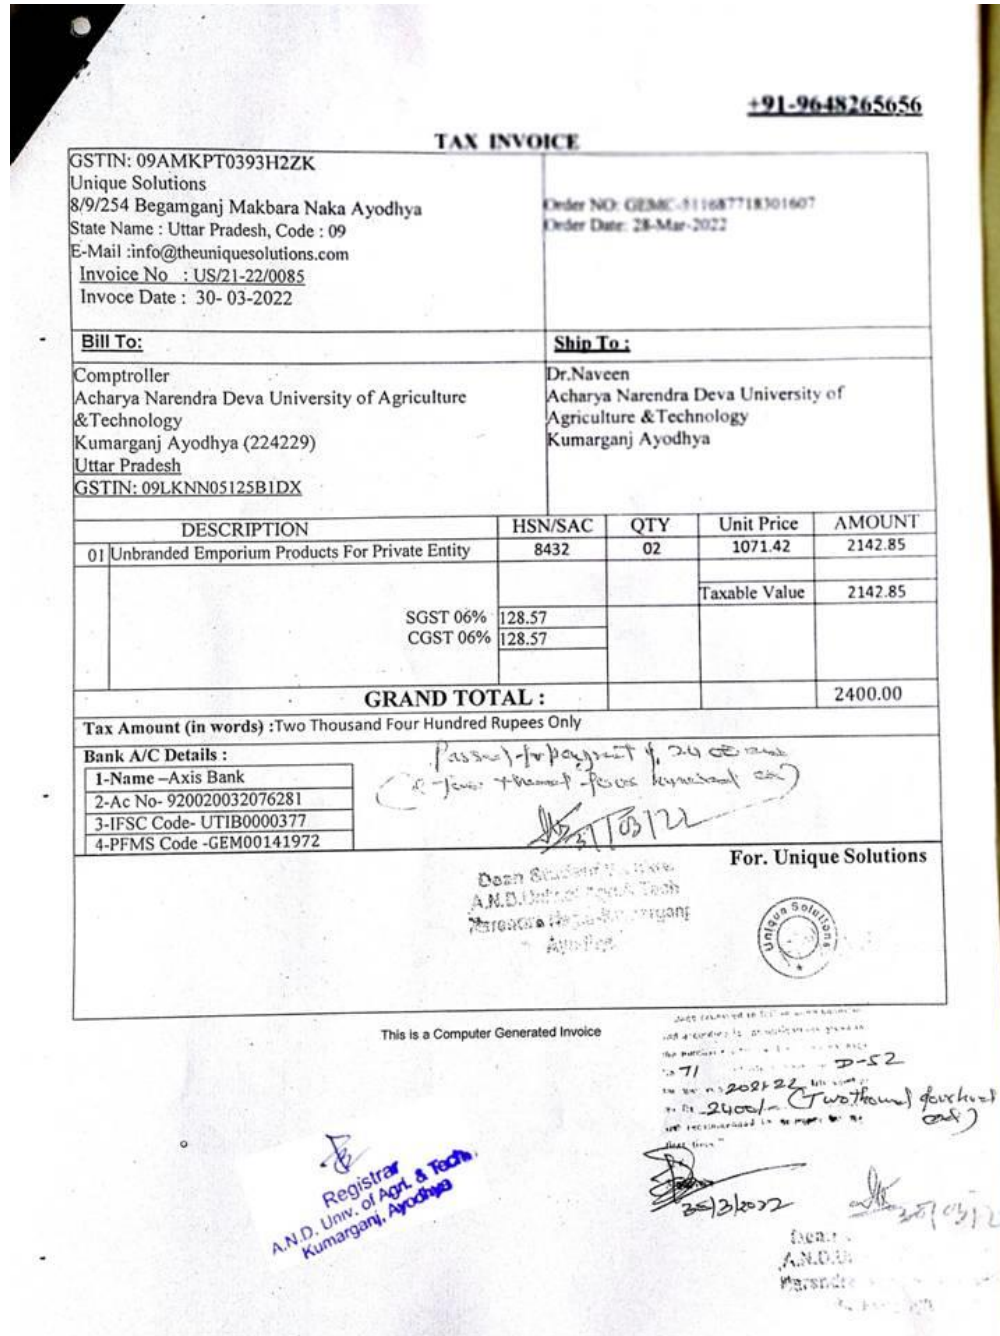 +91-9648265656
TAX INVOICE
GSTIN: 09AMKPT0393H2ZK
Unique Solutions
8/9/254 Begamganj Makbara Naka Ayodhya
State Name : Uttar Pradesh, Code : 09
E-Mail :info@theuniquesolutions.com
Invoice No : US/21-22/0085
Invoce Date : 30- 03-2022
Order NO: GEMC-511687718301607
Order Date: 28-Mar-2022
Bill To:
Comptroller
Acharya Narendra Deva University of Agriculture
&Technology
Kumarganj Ayodhya (224229)
Uttar Pradesh
GSTIN: 09LKNN05125B1DX
Ship To :
Dr.Naveen
Acharya Narendra Deva University of
Agriculture &Technology
Kumarganj Ayodhya
DESCRIPTION HSN/SAC QTY Unit Price AMOUNT
01 Unbranded Emporium Products For Private Entity 8432 02 1071.42 2142.85
Taxable Value 2142.85
SGST 06% 128.57
CGST 06% 128.57
GRAND TOTAL : 2400.00
Tax Amount (in words) :Two Thousand Four Hundred Rupees Only
Bank A/C Details :
1-Name –Axis Bank
2-Ac No- 920020032076281
3-IFSC Code- UTIB0000377
4-PFMS Code -GEM00141972
Passed for payment of
31/03/22
For. Unique Solutions
Dean
A.N.D.
Unique Solutions
This is a Computer Generated Invoice
71 D-52
2021-22
2400/-
Registrar
A.N.D. Univ. of Agri. & Tech.
Kumarganj, Ayodhya
A.N.D.U.